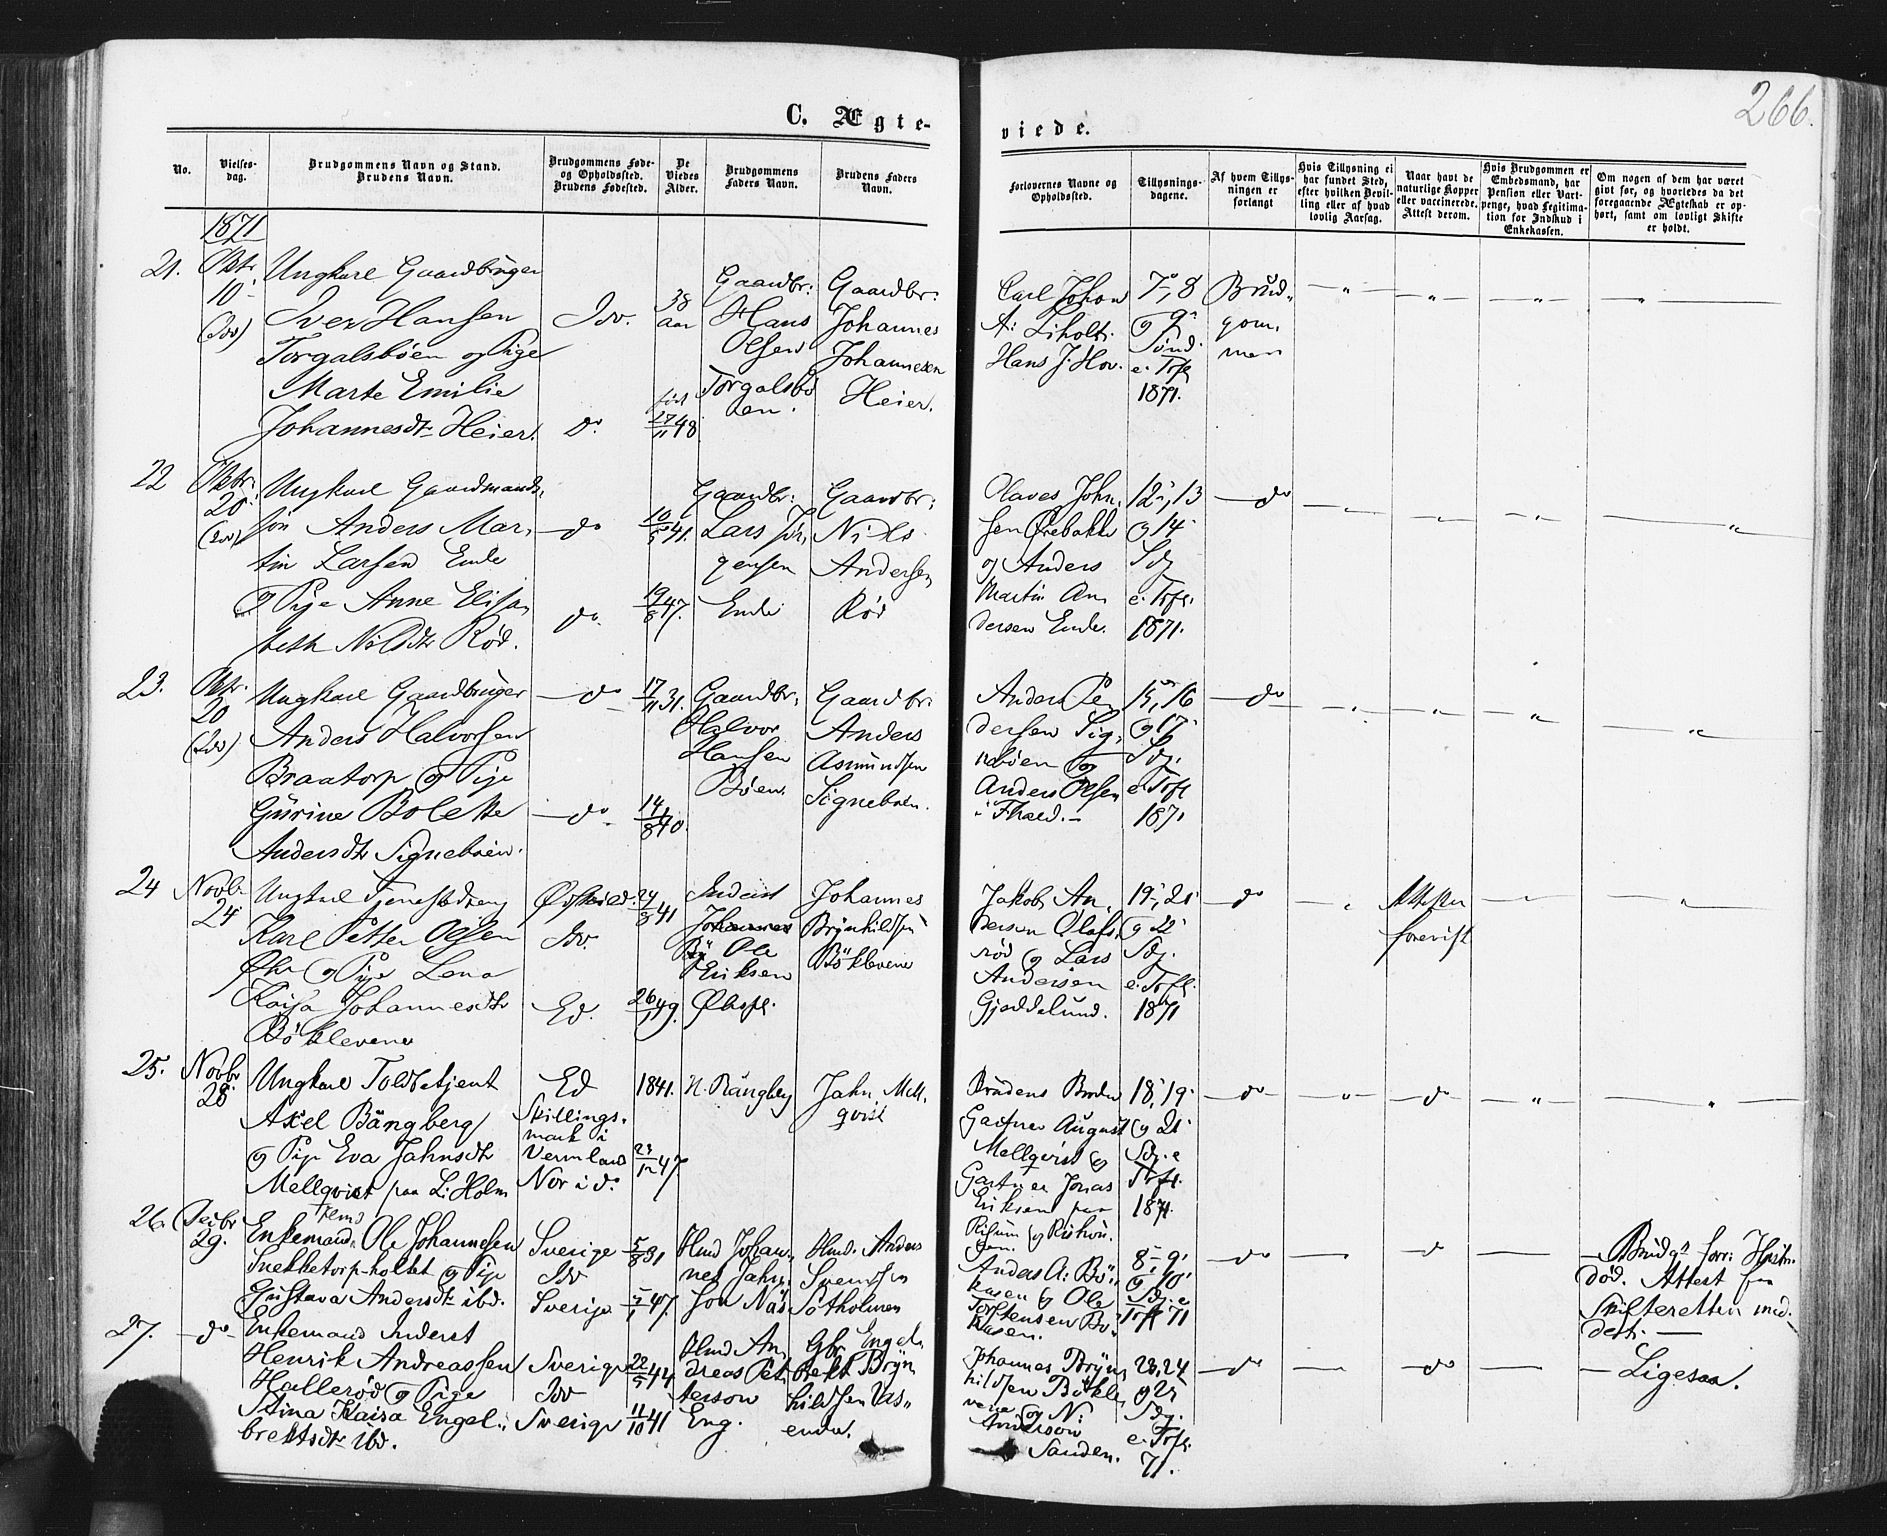 266.
C. Ægte-
viede.
No.
Vielses-
dag.
Brudgommens Navn og Stand.
Brudens Navn.
Brudgommens Føde-
og Opholdssted.
Brudens Fødested.
De
Viedes
Alder.
Brudgommens
Faders Navn.
Brudens Faders
Navn.
Forlovernes Navne og
Opholdssted.
Tillysnings-
dagene.
Af hvem Tillys-
ningen er
forlangt
Hvis Tillysning ei
har fundet Sted,
efter hvilken Bevil-
ling eller af hvad
lovlig Aarsag.
Naar havt de
naturlige Kopper
eller vaccinerede.
Attest derom.
Hvis Brudgommen er
Embedsmand, har
Pension eller Vart-
penge, hvad Legitima-
tion for Indskud i
Enkekassen.
Om nogen af dem har været
givt før, og hvorledes da det
foregaaende Ægteskab er op-
hørt, samt om lovligt Skifte
er holdt.
1871
21.
Oktr
10
(Idd)
Ungkarl Gaardbruger
Iver Hansen
Torgalsbøen og Pige
Marte Emilie
Johannesdtr Heier.
Idd.
do
38
aar
født
27/11 48
Gaardbr:
Hans
Olsen
Torgalsbø
en.
Gaardbr:
Johannes
Johannesen
Heier.
Carl Johan
A: Liholt.
Hans J. Hov.
7, 8
og 9
Sønd.
e. Trft
1871.
Brud-
gom,
men
22
Oktbr.
20
(Idd)
Ungkarl Gaardmands,
søn Anders Mar,
tin Larsen Ende
og Pige Anne Elisa,
beth Nilsdtr Rød.
do
do.
10/5 41.
19/8 47.
Gaardbr:
Lars Jør,
gensen
Ende
Gaardbr:
Nils
Andersen
Rød
Olaves John,
sen Ørebakke
og Anders
Martin An,
dersen Ende.
12, 13
og 14
Sdg
e. Trft.
1871.
do
23.
Oktr.
20
(Idd)
Ungkarl Gaardbruger
Anders Halvorsen
Braatorp og Pige
Gurine Bolette
Andersdtr Signebøen.
do
do
17/11 31.
14/8 40.
Gaardbr:
Halvor
Hansen
Bøen
Gaardbr:
Anders
Asmundsen
Signebøen.
Anders Pe
dersen Sig,
nebøen og
Anders Olsen
i Fhald.
15, 16
og 17
Sdg.
e. Trft
1871
do
24
Novb.
24
Ungkarl Tjenestedreng
Karl Petter Olsen
og Pige Lena
Kaisa Johannesdtr
Böklevene
Idd.
Ed.
24/8 41
26/1 49.
Inderst
Ole
Eriksen
Johannes
Brynhildsen
Böklevene
Jakob An,
dersen Olafs,
rød og Lars
Andersen
Gjeddelund.
19, 21
og 22
Sdg.
e. Trft.
1871
do
Attester
forevist
25.
Novbr
28
Ungkarl Toldbetjent
Axel Bångberg
og Pige Eva Jahnsdtr
Mellqvist paa L: Holm
Ed
Skillings-
mark i
Vermland
Nor i do
1841.
23/12 47
N. Bångberg
Jahn Mell,
qvist
Brudens Broder
Gartner August
Mellqvist og
Gartner Jonas
Eriksen paa
18, 19
og 21
Sdg. e
Trft.
1871.
do
do
26.
Decbr
29.
Enkemand Hmd Ole Johannesen
Snekketorp-holtet og Pige
Gustava Andersdtr ibd.
Sverige
Idd
Sverige
5/8 31
5/1 47.
Hmd Johan,
nes Jahn,
son Näs
Hmd. Anders
Svendsen
Sotholmen
Anders A: Bö,
kasen og Ole
Torstensen Bö,
kasen.
8, 9
og 10
Sdg. e
Trft 71
do
do
Brudgs forr: Hustru
død. Attest fra
Skifteretten med-
delt.
27.
do
Enkemand Inderst
Henrik Andreassen
Hallerød og Pige
Stina Kaisa Engel,
brektsdtr ibd.
Sverige
Idd
Sverige
22/5 44
11/10 41
Hmd An,
dreas Pet,
terson
Eng.
Gbr Engel,
brekt Bryn
hildsen Vas,
enda.
Johannes Bryn,
hildsen Bökle,
vene og N:
Anderson
Sanden.
23, 24
og 25
Sdg.
e. Trft.
71.
do
do
Ligesaa.